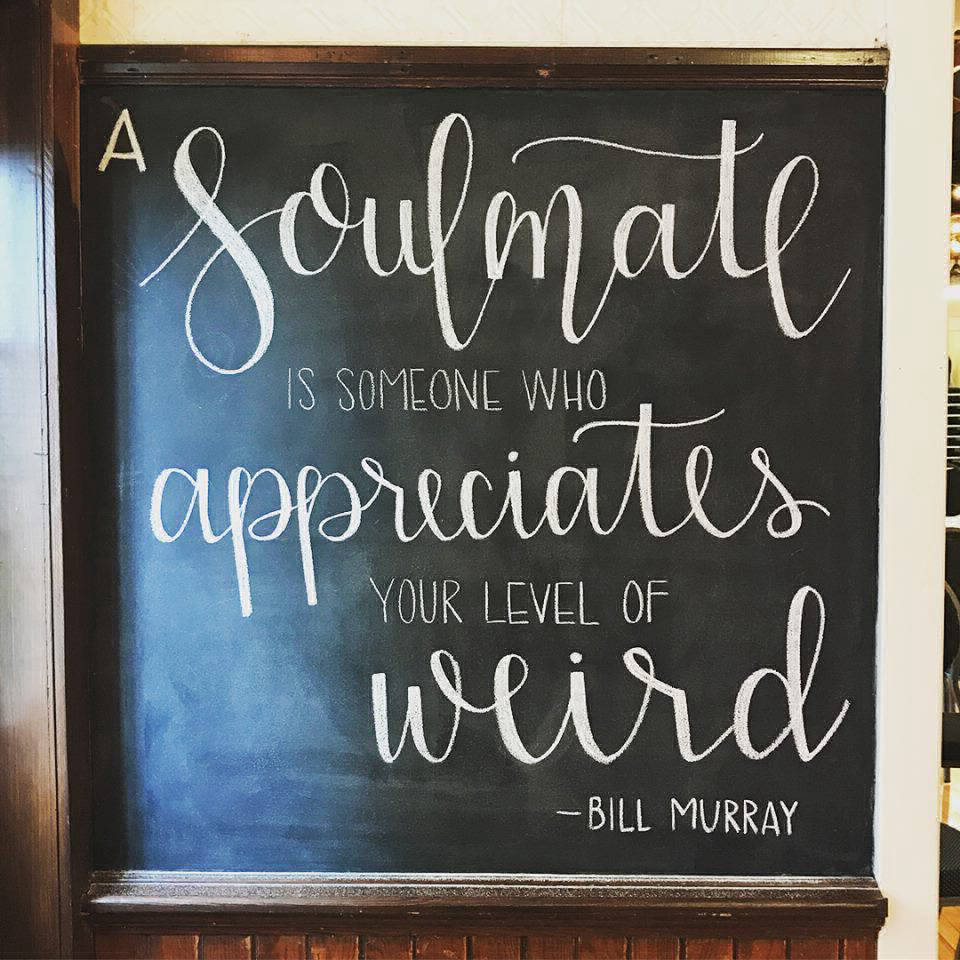 A Soulmate
IS SOMEONE WHO
appreciates
YOUR LEVEL OF
weird
-BILL MURRAY